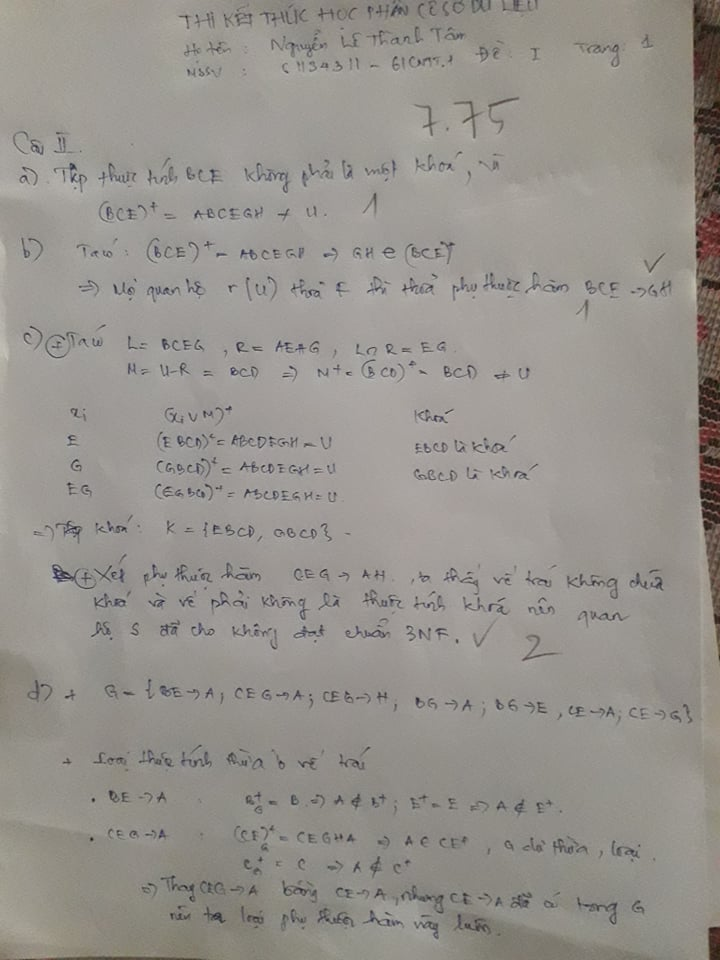 THI KẾT THÚC HỌC PHẦN CƠ SỞ DỮ LIỆU
Họ tên: Nguyễn Lê Thanh Tâm
MSSV: 61CNTT.1 Đề: I Trang: 1
7.75
Câu II.
a). Tập thuộc tính BCE không phải là một khoá, vì
(BCE)+ = ABCEGH ≠ U. 1
b) Ta có: (BCE)+ = ABCEGH => GH ∈ (BCE)+
=> Mọi quan hệ r(U) thoả F thì thoả phụ thuộc hàm BCE → GH
1
c) + Ta có L = BCEG, R = AEHG, L∩R = EG.
M = U-R = BCD => M+ = (BCD)+ = BCD ≠ U
xi (xi ∪ M)+ Khoá
E (EBCD)+ = ABCDEGH = U EBCD là khoá
G (GBCD)+ = ABCDEGH = U GBCD là khoá
EG (EGBCD)+ = ABCDEGH = U.
=> Tập khoá: K = {EBCD, GBCD}
+ Xét phụ thuộc hàm CEG → AH, ta thấy vế trái không chứa
khoá và vế phải không là thuộc tính khoá nên quan
hệ S đã cho không đạt chuẩn 3NF. ✓ 2
d) + G = {BE→A, CEG→A; CEG→H; BG→A; BG→E, CE→A; CE→G}
+ Loại thuộc tính thừa ở vế trái
. BE → A : B+G = B => A ∉ B+; E+ = E => A ∉ E+.
. CEG → A : (CE)+G = CEGHA => A ∈ CE+, G dư thừa, loại.
C+G = C => A ∉ C+
=> Thay CEG → A bằng CE → A, nhưng CE → A đã có trong G
nên ta loại phụ thuộc hàm này luôn.